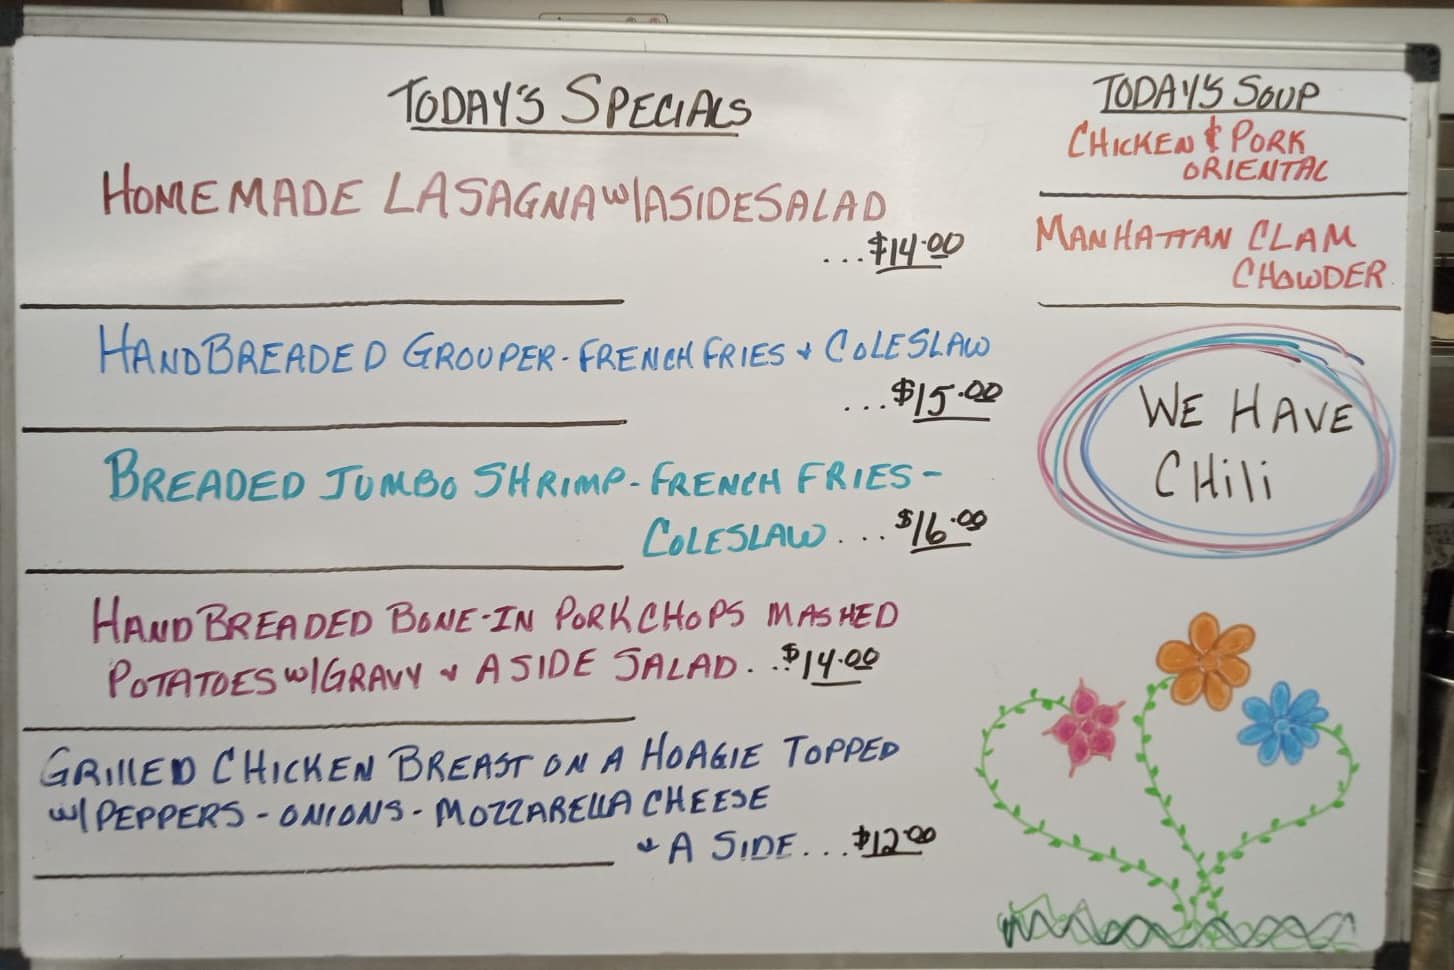 TODAY'S SPECIALS
HOMEMADE LASAGNA W/ A SIDE SALAD
...$14.00
HAND BREADED GROUPER - FRENCH FRIES & COLESLAW
...$15.00
BREADED JUMBO SHRIMP - FRENCH FRIES -
COLESLAW...$16.00
HAND BREADED BONE-IN PORK CHOPS MASHED
POTATOES W/ GRAVY & A SIDE SALAD...$14.00
GRILLED CHICKEN BREAST ON A HOAGIE TOPPED
W/ PEPPERS - ONIONS - MOZZARELLA CHEESE
& A SIDE...$12.00
TODAY'S SOUP
CHICKEN & PORK
ORIENTAL
MANHATTAN CLAM
CHOWDER
WE HAVE
CHili